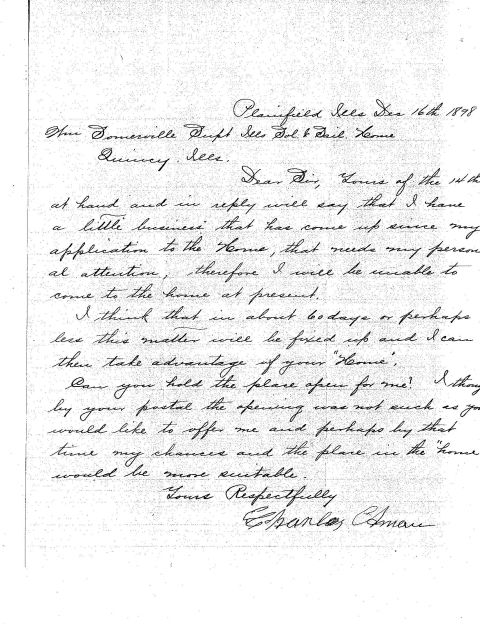 Plainfield Ills Dec 16th 1898
Wm Somerville Supt Ills Sol & Sail. Home
Quincy. Ills.
Dear Sir, Yours of the 14th
at hand and in reply will say that I have
a little business that has come up since my
application to the Home, that needs my person
al attention, therefore I will be unable to
come to the home at present.
I think that in about 60 days or perhaps
less this matter will be fixed up and I can
then take advantage of your "Home".
Can you hold the place open for me? I thoug
by your postal the opening was not such as you
would like to offer me and perhaps by that
time my chances and the place in the "home
would be more suitable.
Yours Respectfully
Charles